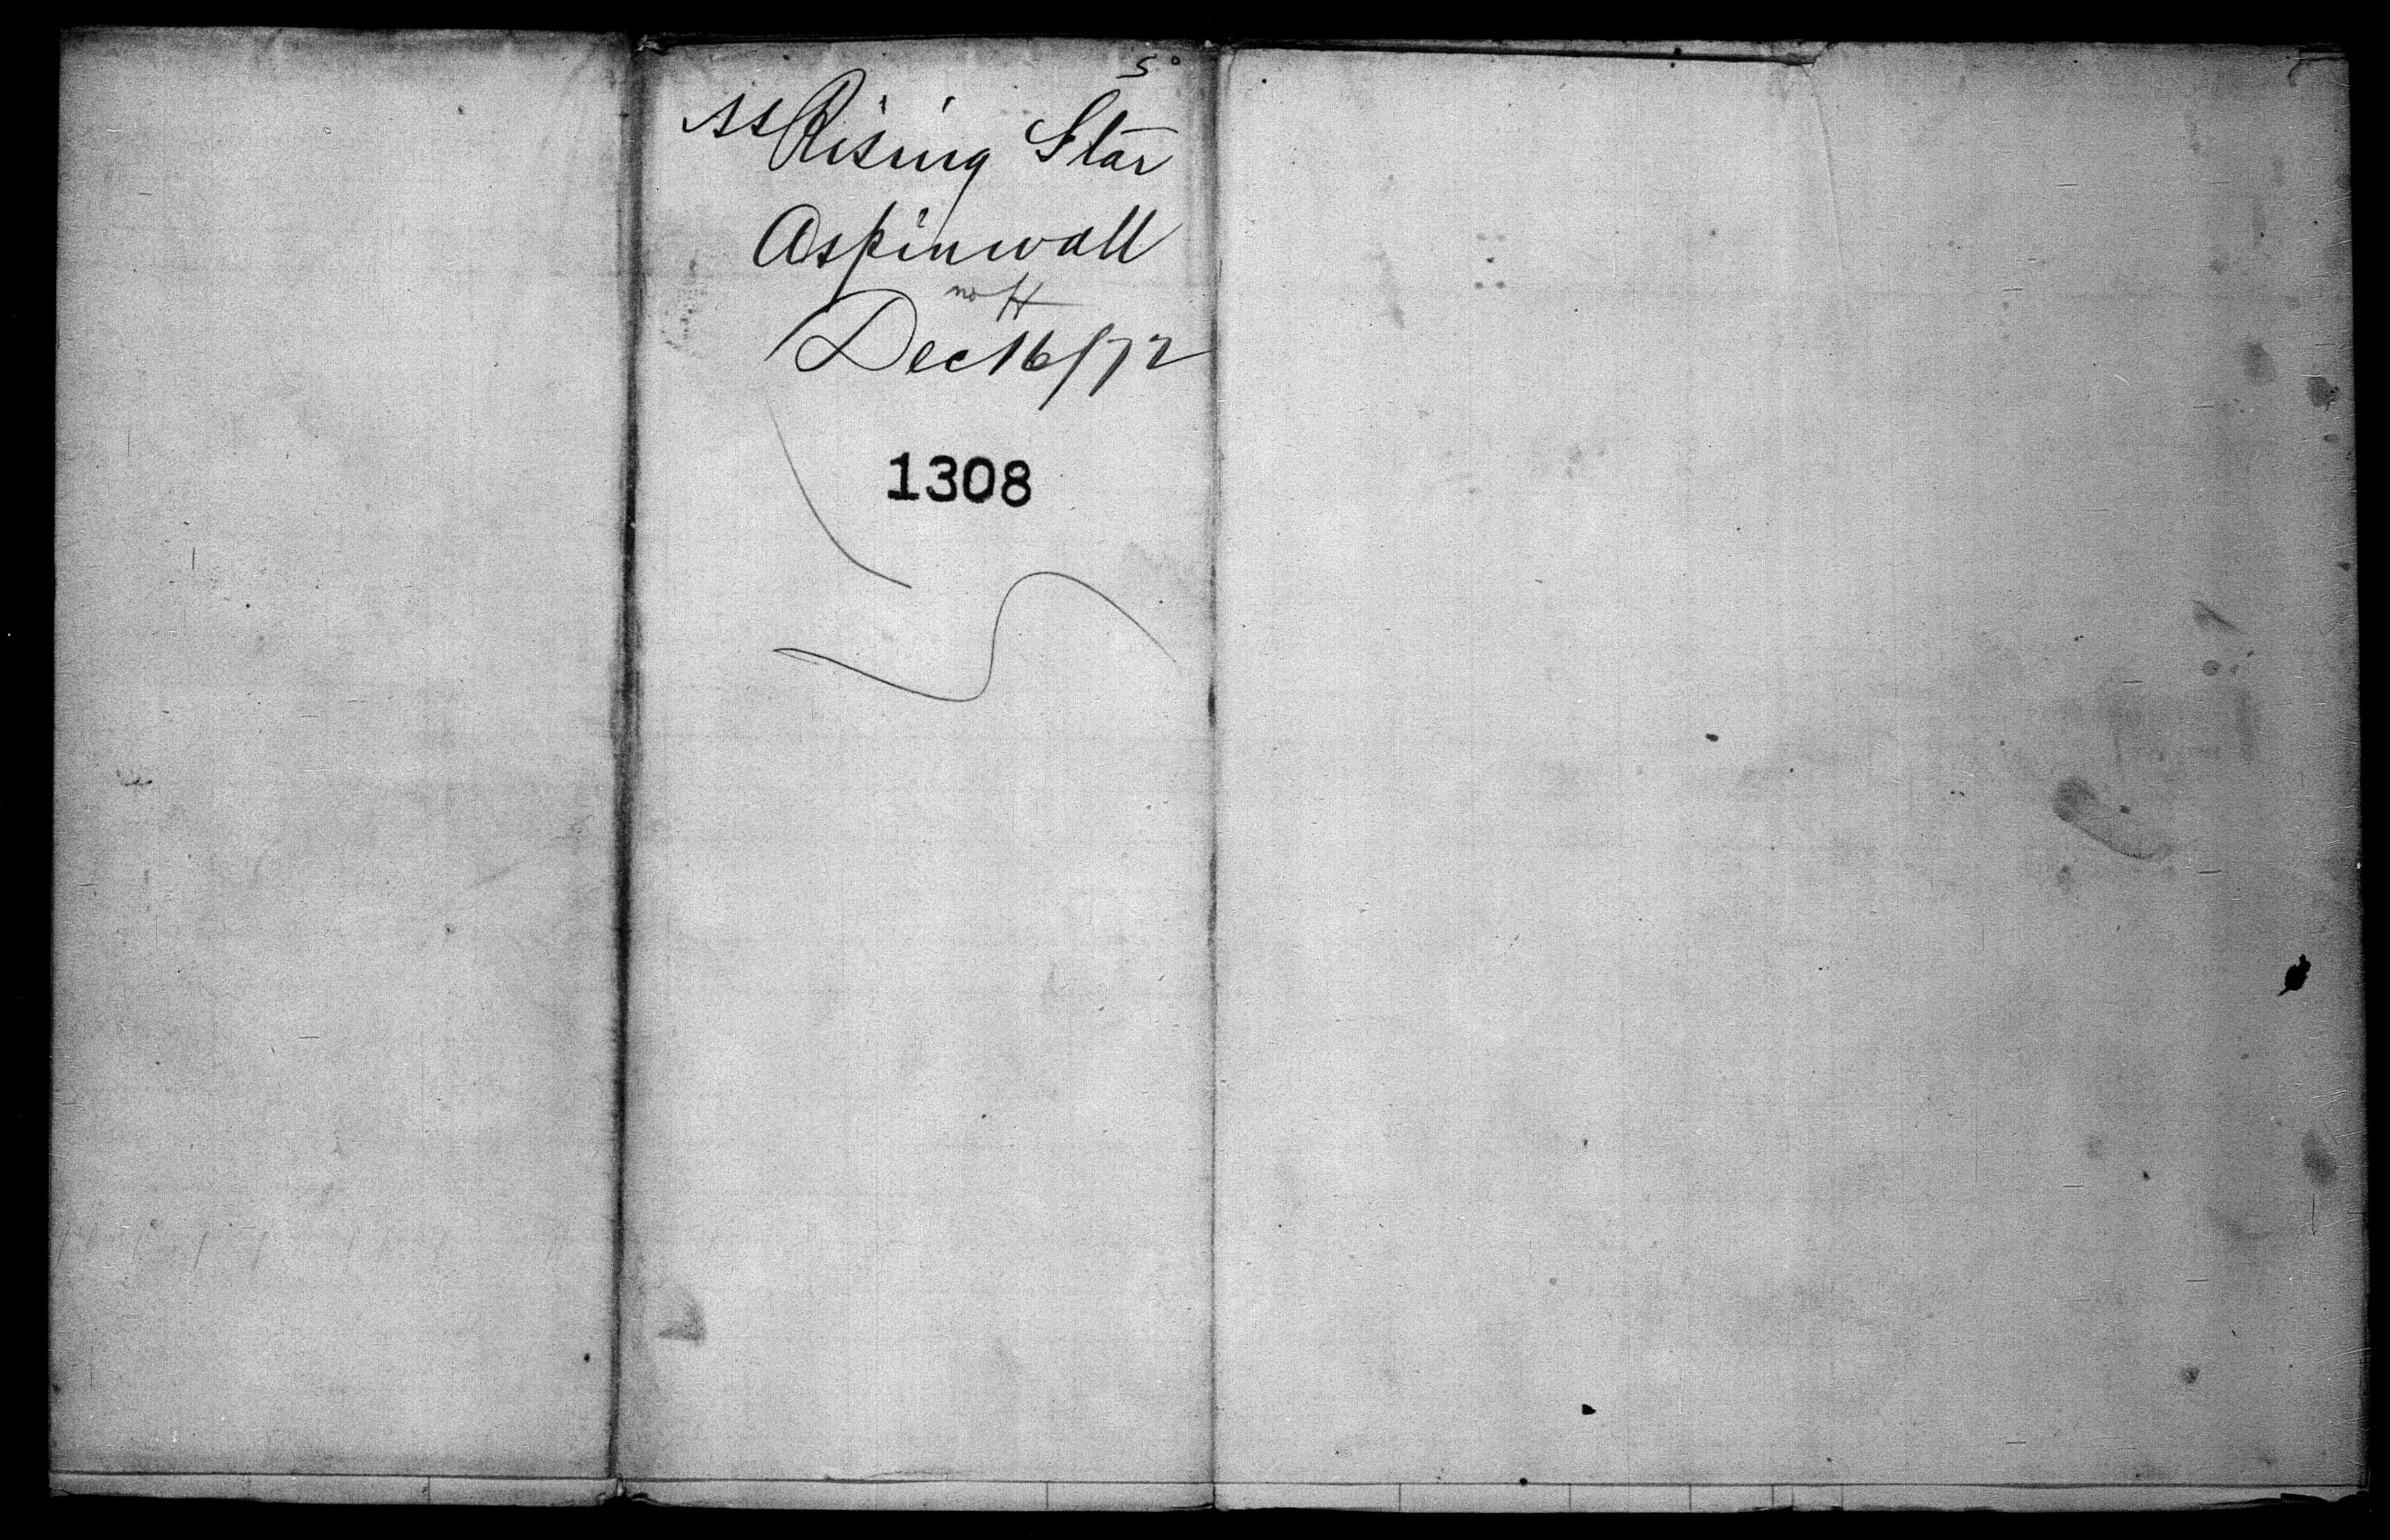 5°
SS Rising Star
Aspinwall
no H
Dec 16/72
1308